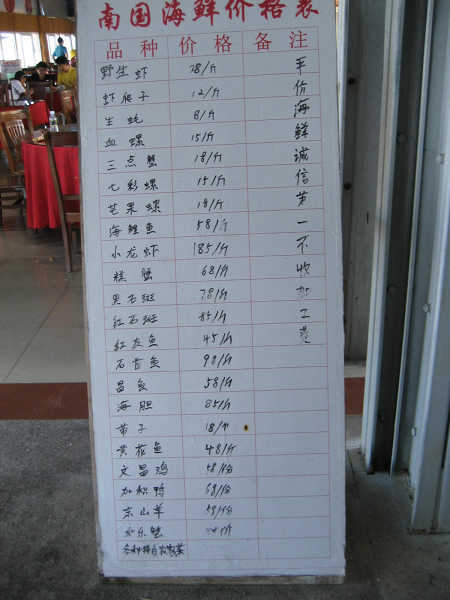 南国海鲜价格表
品种 价格 备注
野生虾 78/斤 平
虾爬子 12/斤 价
生蚝 8/斤 海
血螺 15/斤 鲜
三点蟹 18/斤 诚
七彩螺 15/斤 信
芒果螺 18/斤 第
海鲤鱼 58/斤 一
小龙虾 185/斤 不
糕蟹 68/斤 收
黑石斑 78/斤 加
红石斑 85/斤 工
红友鱼 45/斤 费
石古鱼 98/斤
昌鱼 58/斤
海胆 85/斤
带子 18/个
黄花鱼 48/斤
文昌鸡 58/份
加积鸭 68/份
东山羊 58/份
和乐蟹